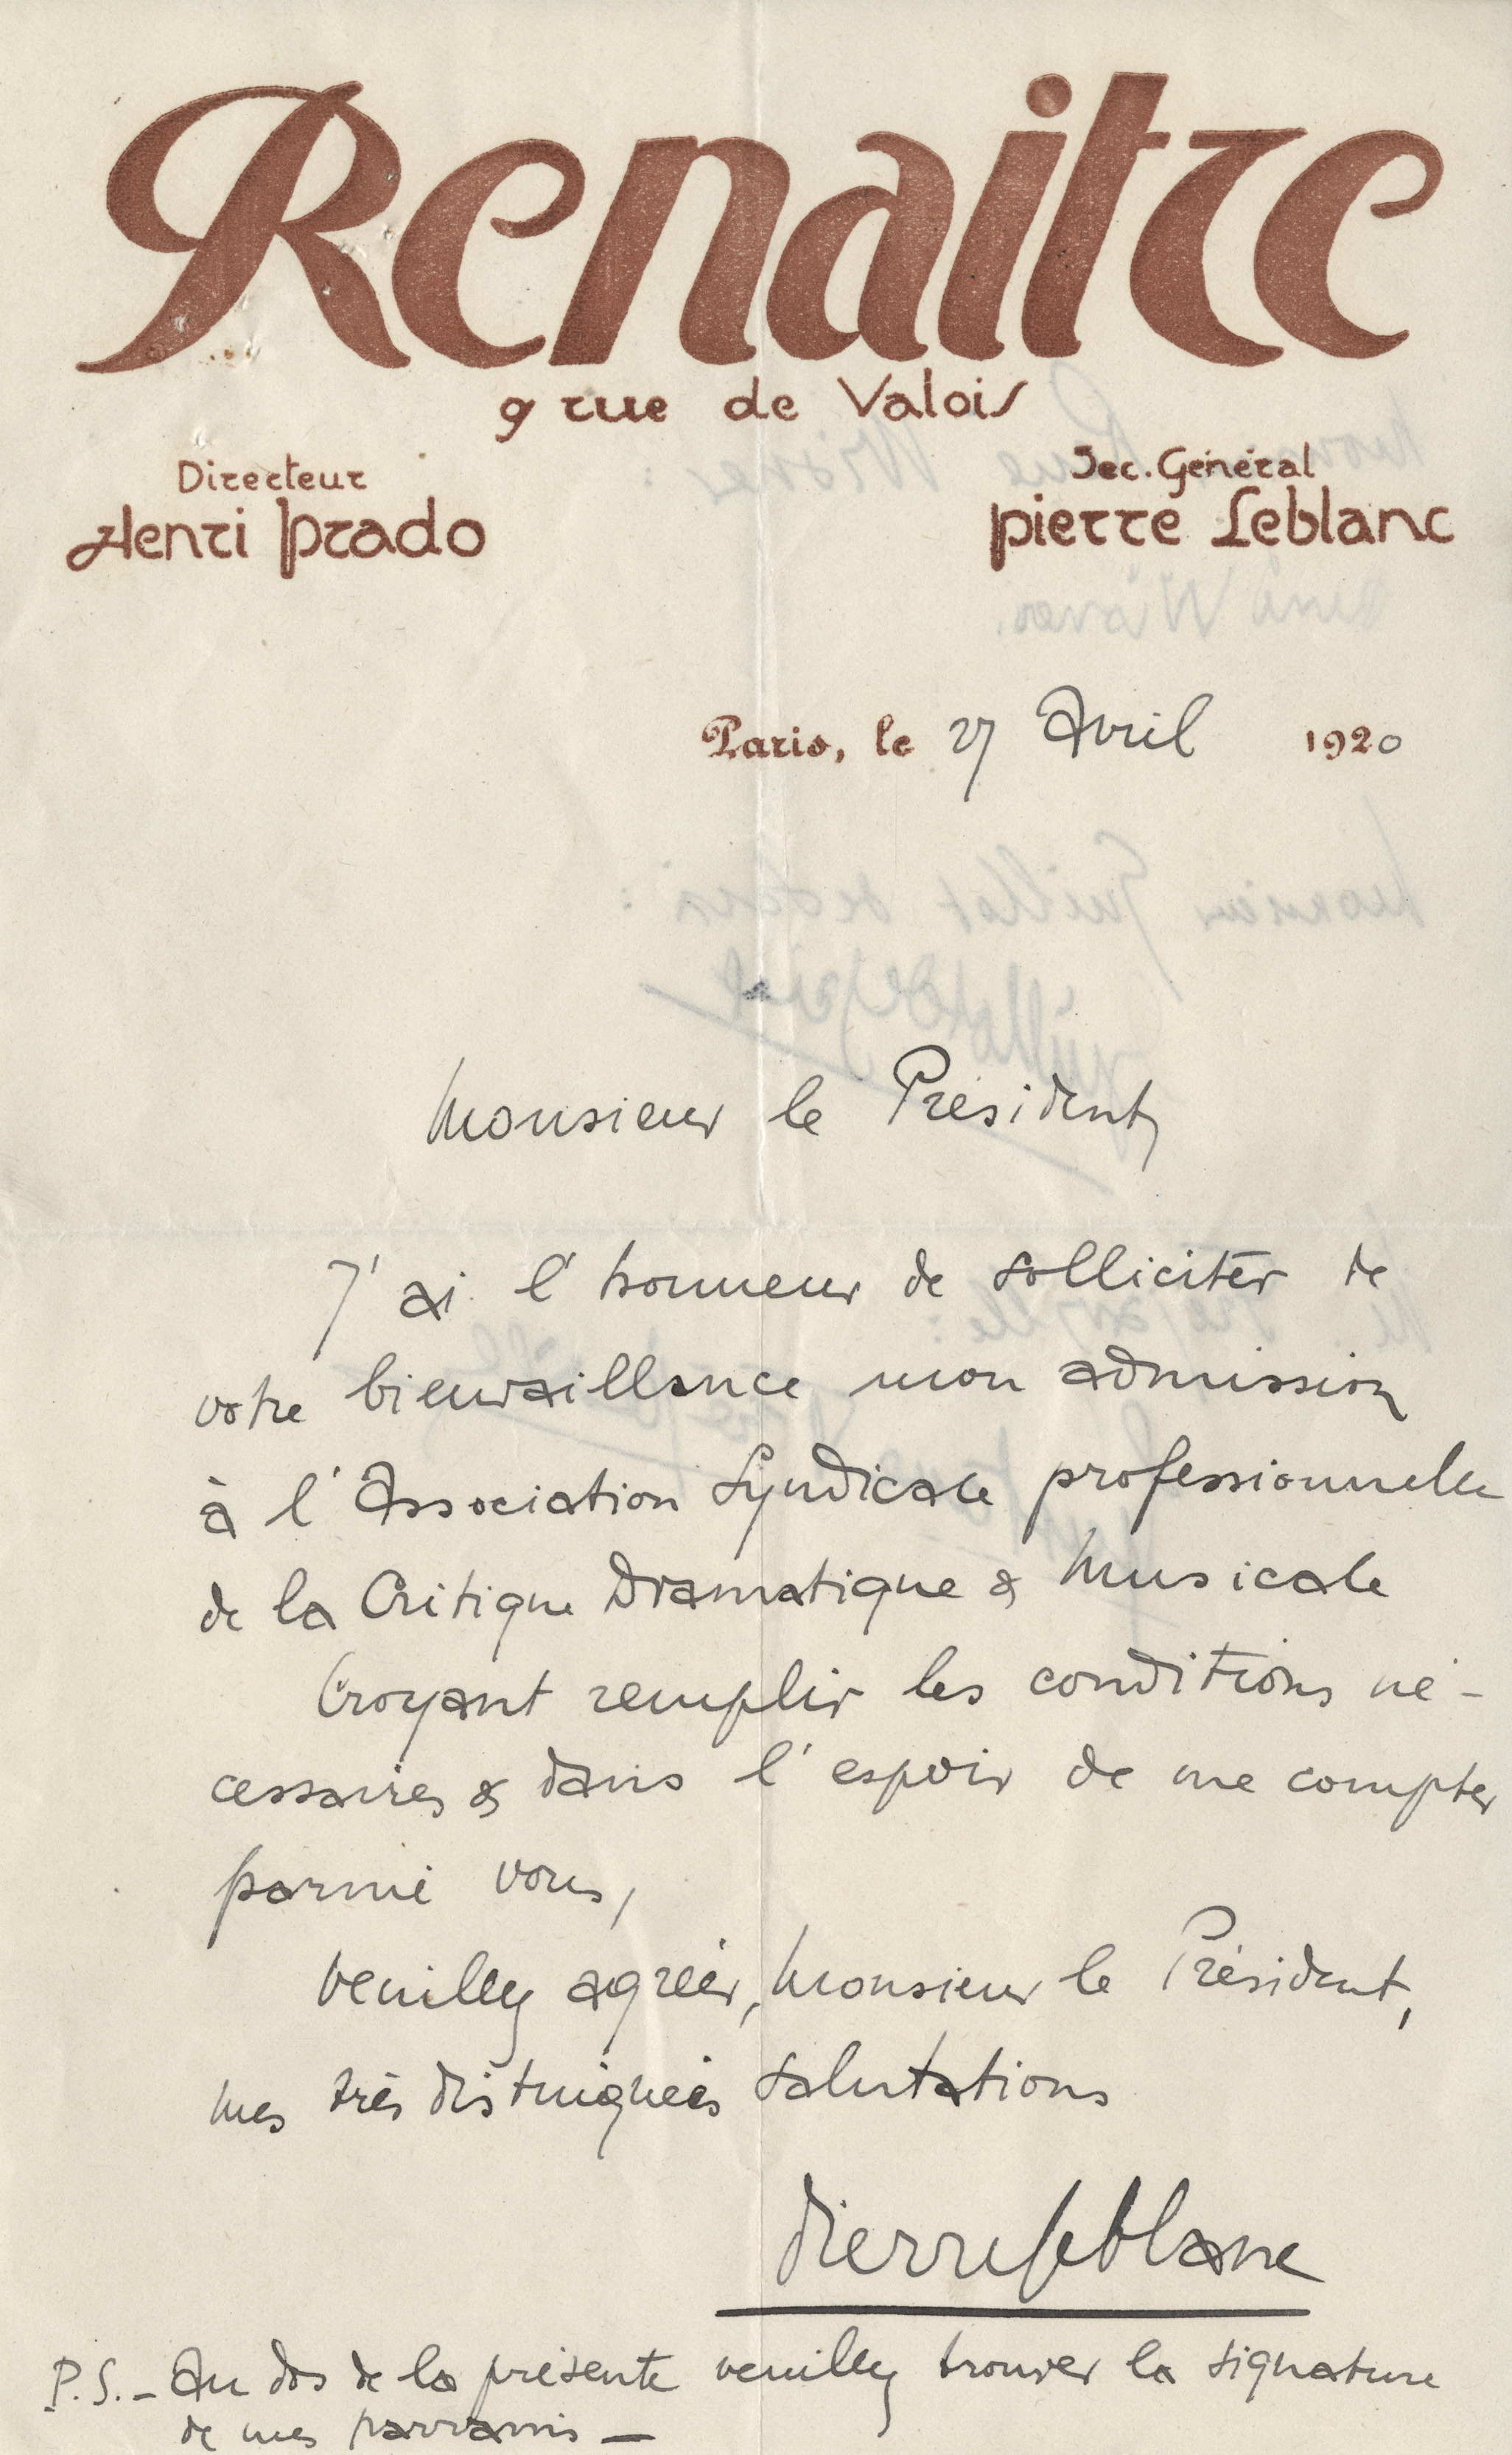 Renaitre
9 rue de Valois
Directeur
Henri Prado
Sec. Général
Pierre Leblanc
Paris, le 27 Avril 1920
Monsieur le Président,
J'ai l'honneur de solliciter de
votre bienvaillance mon admission
à l'Association Syndicale professionnelle
de la Critique Dramatique & Musicale
Croyant remplir les conditions né-
cessaires & dans l'espoir de me compter
parmi vous,
Veuillez agréer, Monsieur le Président,
mes très distinguées salutations
Pierre Leblanc
P.S. - Au dos de la présente veuillez trouver la signature
de mes parrains -